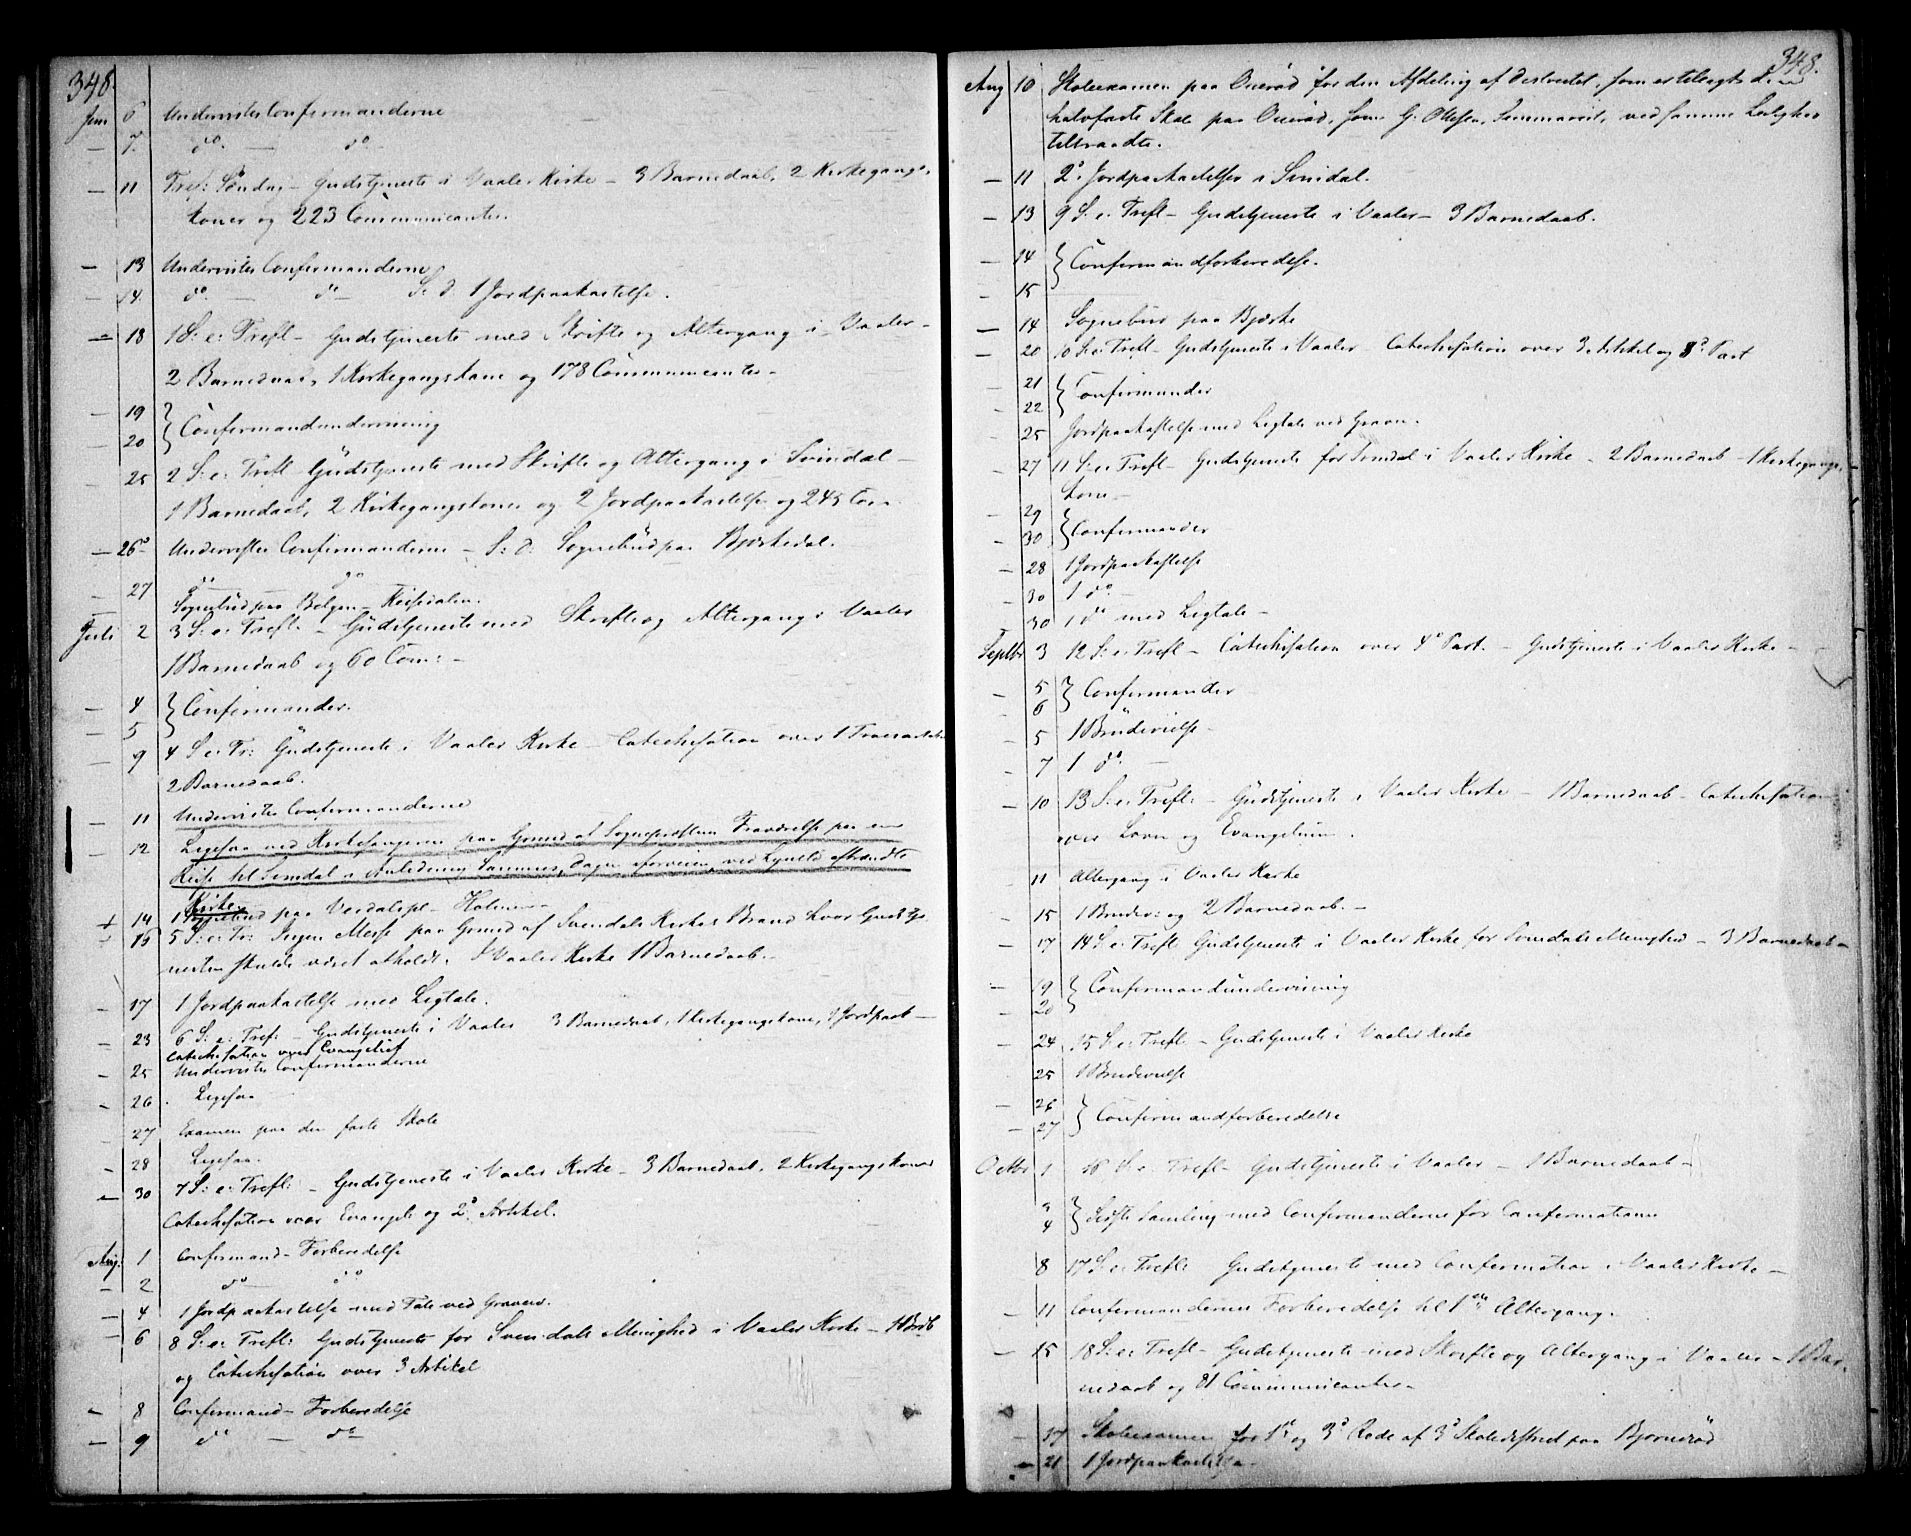 348.
Juni 6 Undervistes Confirmanderne
— 7. do. — do —
— 11 Tref: Søndag – Gudstjeneste i Vaaler Kirke – 3 Barnedaab, 2 Kirkegangs-
koner og 223 Communicanter.
— 13 Undervistes Confirmanderne
— 14. do. — do — S: d. 1 Jordpaakastelse.
— 18 1 S: e: Trefl – Gudstjeneste med Skrifte og Altergang i Vaaler –
2 Barnedaab, 1 Kirkegangskone og 178 Communicanter –
— 19 } Confirmandundervisning
— 20
— 25 2 S: e: Trefl – Gudstjeneste med Skrifte og Altergang i Svindal –
1 Barnedaab, 2 Kirkegangskoner og 2 Jordpaakastelse og 245 Com
— 26 Undervistes Confirmanderne – S: d: Sognebud paa Bjerkedal.
27 do — do
Sognebud paa Bolgen –
Juli 2 3 S: e: Trefl: – Gudstjeneste med Skrifte og Altergang i Vaaler
1 Barnedaab og 60 Com: –
— 4 } Confirmander.
— 5
— 9 4 S: e: Tr: Gudstjeneste i Vaaler Kirke – Catechisation over 1
2 Barnedaab.
— 11 Undervistes Confirmanderne
— 12 Ligesaa ved Kirkesangeren paa Grund af Sognepræstens Fraværelse paa en
Reise til Svindal i Anledning Sammes, Dagen forveien, ved Lynild afbrændte
Kirke
+ 14 1 Sognebud paa Verdalspl – Holmen –
— 16 5 S: e: Tr: Ingen Messe paa Grund af Svendals Kirkes Brand hvor Gudstje-
nesten skulde været afholdt. I Vaaler Kirke 1 Barnedaab. –
— 17 1 Jordpaakastelse med Ligtale.
— 23 6 S: e: Tref: – Gudstjeneste i Vaaler 3 Barnedaab, 1 Kirkegangskone, 1 Jordpaak –
Catechisation over Evangeliet
— 25 Undervistes Confirmanderne
— 26 Ligesaa
27 Examen paa den faste Skole
— 28 Ligesaa.
— 30 7 S: e: Trefl: – Gudstjeneste i Vaaler Kirke – 3 Barnedaab, 2 Kirkegangskoner
Catechisation over Evangel: og 2. Artikel.
Aug: 1 Confirmand – Forberedelse
— 2 do — do
— 4 1 Jordpaakastelse med Tale ved Graven.
— 6 8 S: e: Trefl: Gudstjeneste for Svendals Menighed i Vaaler Kirke –
og Catechisation over 3 Artikel
— 8 Confirmand – Forberedelse
— 9 do — do
348.
Aug 10 Skoleexamen paa for den Afdeling af Destrictet, som er tillagt d.
halvfaste Skole paa som G. Ottesen, ved samme Leilighed
tiltraadte.
— 11 2 Jordpaakastelser i Svindal.
— 13 9 S: e: Trefl – Gudstjeneste i Vaaler – 3 Barnedaab.
— 14 } Confirmandforberedelse.
— 15
— 14 Sognebud paa Bjerke
— 20 10 S: e: Trefl – Gudstjeneste i Vaaler – Catechisation over 3 Artikel og 3. Part
— 21 } Confirmander
— 22
— 25 Jordpaakastelse med Ligtale ved Graven.
— 27 11 S: e: Trefl – Gudstjeneste for Svindal i Vaaler Kirke – 2 Barnedaab – 1 Kirkegangs-
kone –
— 29 } Confirmander
— 30
— 28 1 Jordpaakastelse
— 30 1 do —
30 1 do med Ligtale –
Septbr 3 12 S: e: Trefl – Catechisation over 4. Part. – Gudstjeneste i Vaaler Kirke –
— 5 } Confirmander
6
— 5 1 Brudevielse –
— 7 1 do. —
— 10 13 S: e: Trefl: – Gudstjeneste i Vaaler Kirke – 1 Barnedaab – Catechisation
over Loven og Evangelium.
— 11 Altergang i Vaaler Kirke
— 15 1 Brudev: og 2 Barnedaab. –
— 17 14 S: e: Trefl Gudstjeneste i Vaaler Kirke for Svindals Menighed – 3 Barnedaab –
— 19 } Confirmandundervisning
20
— 24 15 S: e: Trefl – Gudstjeneste i Vaaler Kirke
25 1 Brudevielse
— 26 } Confirmandforberedelse
— 27
Octbr 1 16 S: e: Trefl – Gudstjeneste i Vaaler – 1 Barnedaab –
3 } Sidste Samling med Confirmanderne før Confirmationen
4
8 17 S: e: Trefl: Gudstjeneste med Confirmation i Vaaler Kirke –
— 11 Confirmandernes Forberedelse til 1ste Altergang.
— 15 18 S: e: Trefl – Gudstjeneste med Skrifte og Altergang i Vaaler – 1 Bar-
nedaab og 81 Communicanter –
— 17 Skoleexamen for 1ste og 3d Rode af 3d Skoledistrict paa Bjørnerød
— 21 1 Jordpaakastelse –